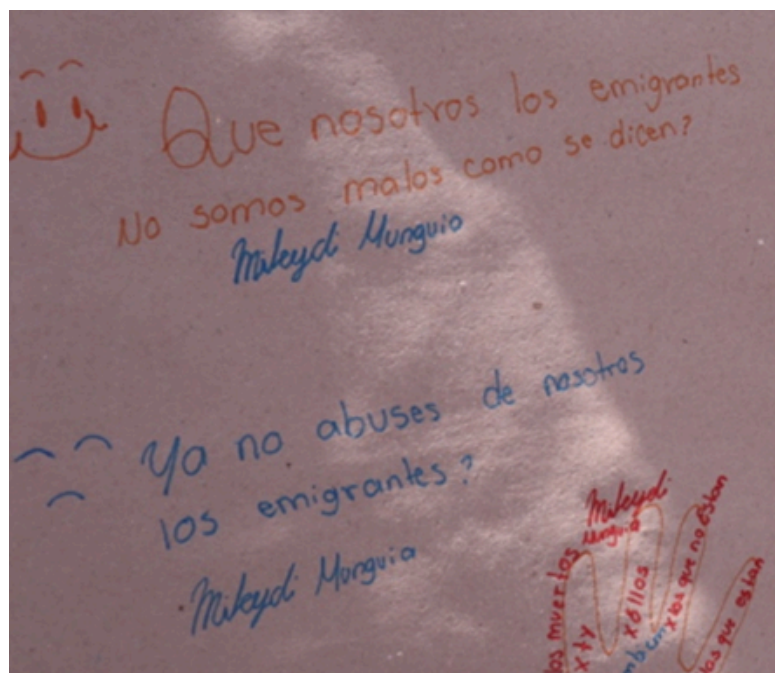 Que nosotros los emigrantes
No somos malos como se dicen?
Mileydi Munguia
Ya no abuses de nosotros
los emigrantes?
Mileydi Munguia
Mileydi
Munguia
los muertos
x ty
x ellos
xlos que no estan
los que estan